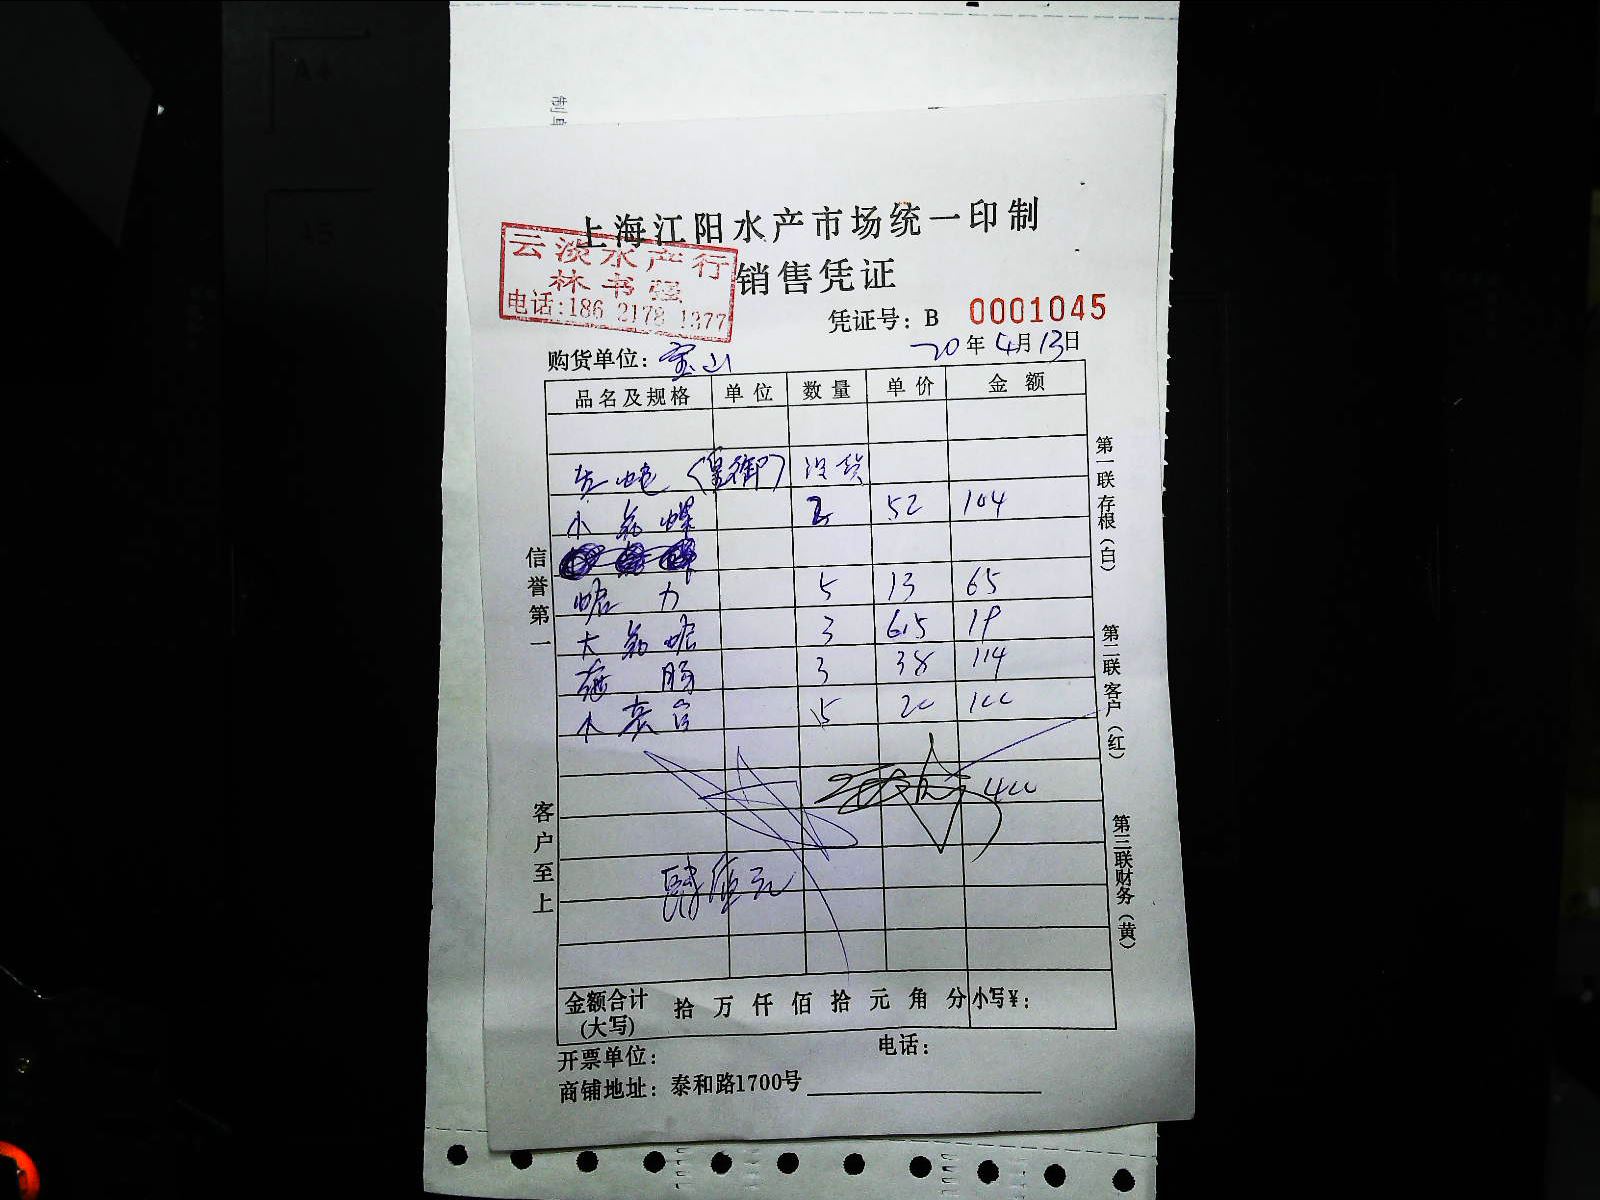 上海江阳水产市场统一印制
云淡水产行
林书强
电话:186 2178 1377
销售凭证
凭证号: B 0001045
20年4月13日
购货单位: 宝山
品名及规格 单位 数量 单价 金额
(皇御) 没货
小 2 52 104
5 13 65
大 3 6.5 19
3 38 114
小 5 20 100
400
肆佰元
金额合计(大写) 拾 万 仟 佰 拾 元 角 分 小写¥:
开票单位: 电话:
商铺地址: 泰和路1700号
信誉第一
客户至上
第一联存根(白)
第二联客户(红)
第三联财务(黄)